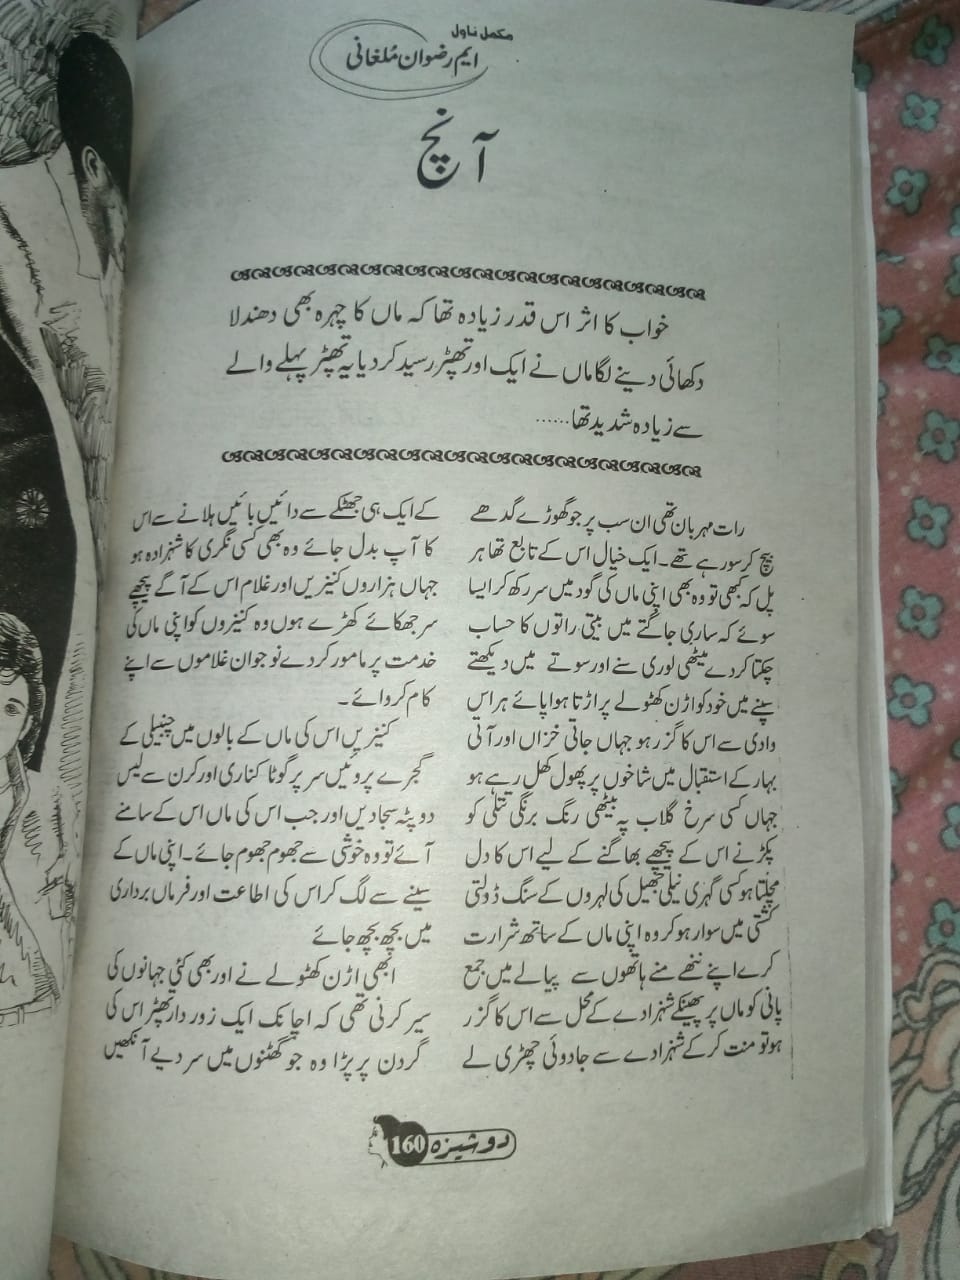 مکمل ناول
ایم رضوان مُلغانی
آنچ
خواب کا اثر اس قدر زیادہ تھا کہ ماں کا چہرہ بھی دھندلا
دکھائی دینے لگا ماں نے ایک اور تھپڑ رسید کر دیا یہ تھپڑ پہلے والے
سے زیادہ شدید تھا......
رات مہربان تھی ان سب پر جو گھوڑے گدھے
بیچ کر سو رہے تھے۔ ایک خیال اس کے تابع تھا ہر
پل کہ کبھی تو وہ بھی اپنی ماں کی گود میں سر رکھ کر ایسا
سوئے کہ ساری جاگتے میں بیتی راتوں کا حساب
چکتا کر دے میٹھی لوری سنے اور سوتے میں دیکھتے
سپنے میں خود کو اڑن کھٹولے پر اڑتا ہوا پائے ہر اس
وادی سے اس کا گزر ہو جہاں جاتی خزاں اور آتی
بہار کے استقبال میں شاخوں پر پھول کھل رہے ہو
جہاں کسی سرخ گلاب پہ بیٹھی رنگ برنگی تتلی کو
پکڑنے اس کے پیچھے بھاگنے کے لیے اس کا دل
مچلتا ہو کسی گہری نیلی جھیل کی لہروں کے سنگ ڈولتی
کشتی میں سوار ہو کر وہ اپنی ماں کے ساتھ شرارت
کرے اپنے ننھے منے ہاتھوں سے پیالے میں جمع
پانی کو ماں پر پھینکے شہزادے کے محل سے اس کا گزر
ہو تو منت کر کے شہزادے سے جادوئی چھڑی لے
کے ایک ہی جھٹکے سے دائیں بائیں ہلانے سے اس
کا آپ بدل جائے وہ بھی کسی نگری کا شہزادہ ہو
جہاں ہزاروں کنیزیں اور غلام اس کے آگے پیچھے
سر جھکائے کھڑے ہوں وہ کنیزوں کو اپنی ماں کی
خدمت پر مامور کر دے نوجوان غلاموں سے اپنے
کام کروائے۔
کنیزیں اس کی ماں کے بالوں میں چنبیلی کے
گجرے پروئیں سر پر گوٹا کناری اور کرن سے لیس
دوپٹہ سجا دیں اور جب اس کی ماں اس کے سامنے
آئے تو وہ خوشی سے جھوم جھوم جائے۔ اپنی ماں کے
سینے سے لگ کر اس کی اطاعت اور فرماں برداری
میں بچھ بچھ جائے
ابھی اڑن کھٹولے نے اور بھی کئی جہانوں کی
سیر کرنی تھی کہ اچانک ایک زور دار تھپڑ اس کی
گردن پر پڑا وہ جو گھٹنوں میں سر دیے آنکھیں
دوشیزہ 160